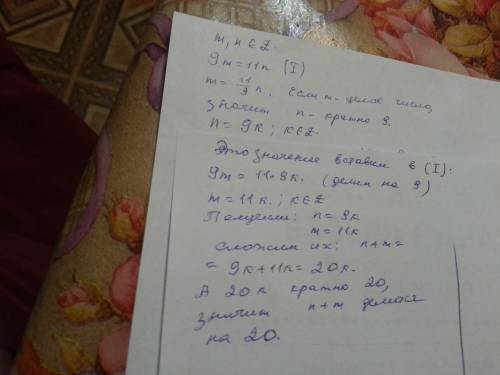 m, n ∈ Z.
9m = 11n (I)
m = 11/9 n. Если m - целое число,
значит n - кратно 9.
n = 9к; к∈Z.
Это значение вставим в (I):
9m = 11·9к. (делим на 9)
m = 11к.; к∈Z
Получили: n = 9к
m = 11к
сложим их; n+m =
= 9к+11к = 20к.
А 20к кратно 20,
значит n+m делится
на 20.